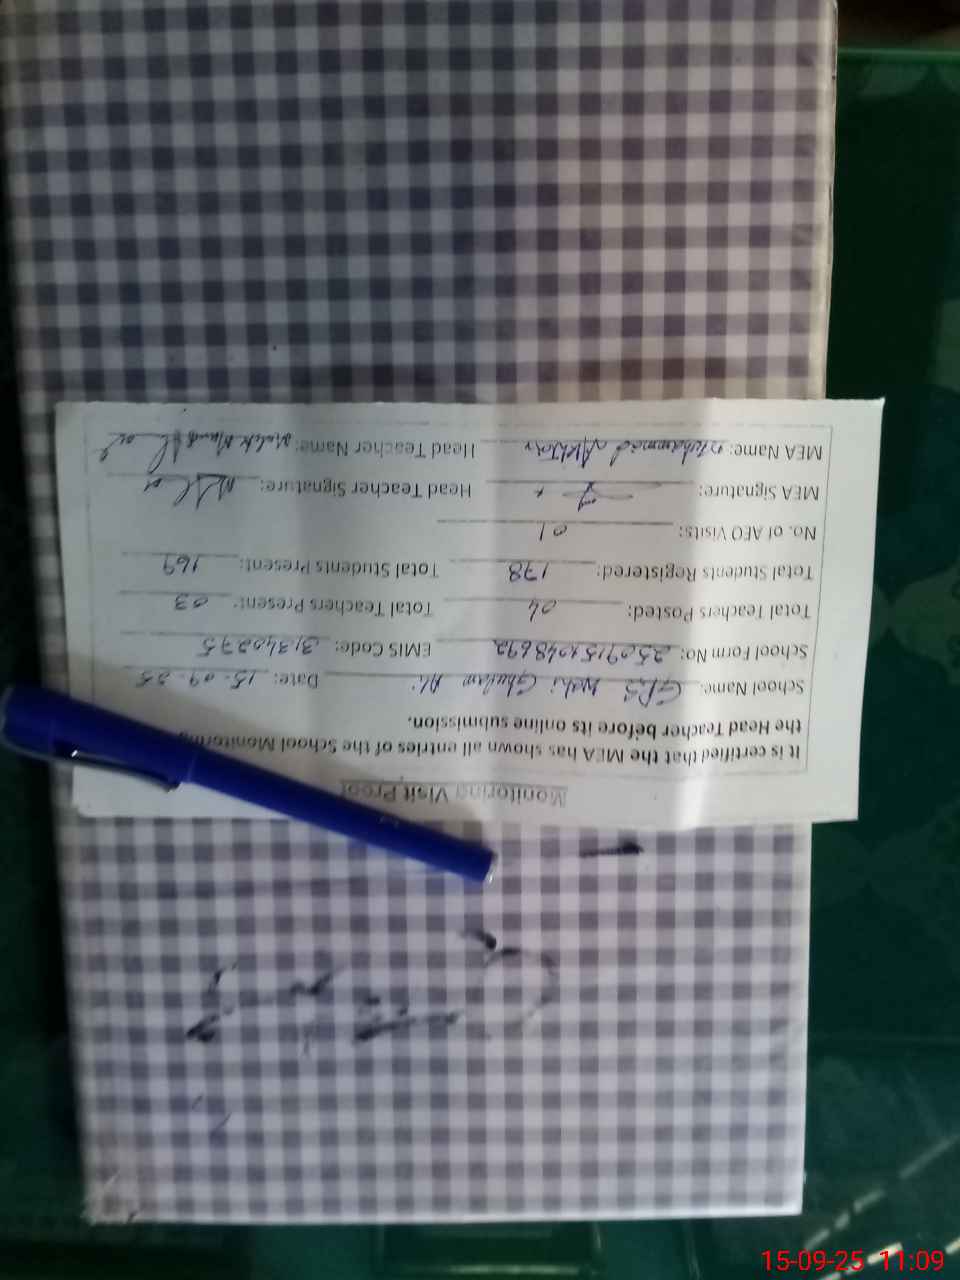 Monitoring Visit Proof
It is certified that the MEA has shown all entries of the School Monitoring
the Head Teacher before its online submission.
School Name: GPS Ghulam Ali Date: 15-09-25
School Form No: 25091514048692 EMIS Code: 31340275
Total Teachers Posted: 04 Total Teachers Present: 03
Total Students Registered: 178 Total Students Present: 169
No. of AEO Visits: 01
MEA Signature: Head Teacher Signature:
MEA Name: Muhammad Akhtar Head Teacher Name:
15-09-25 11:09